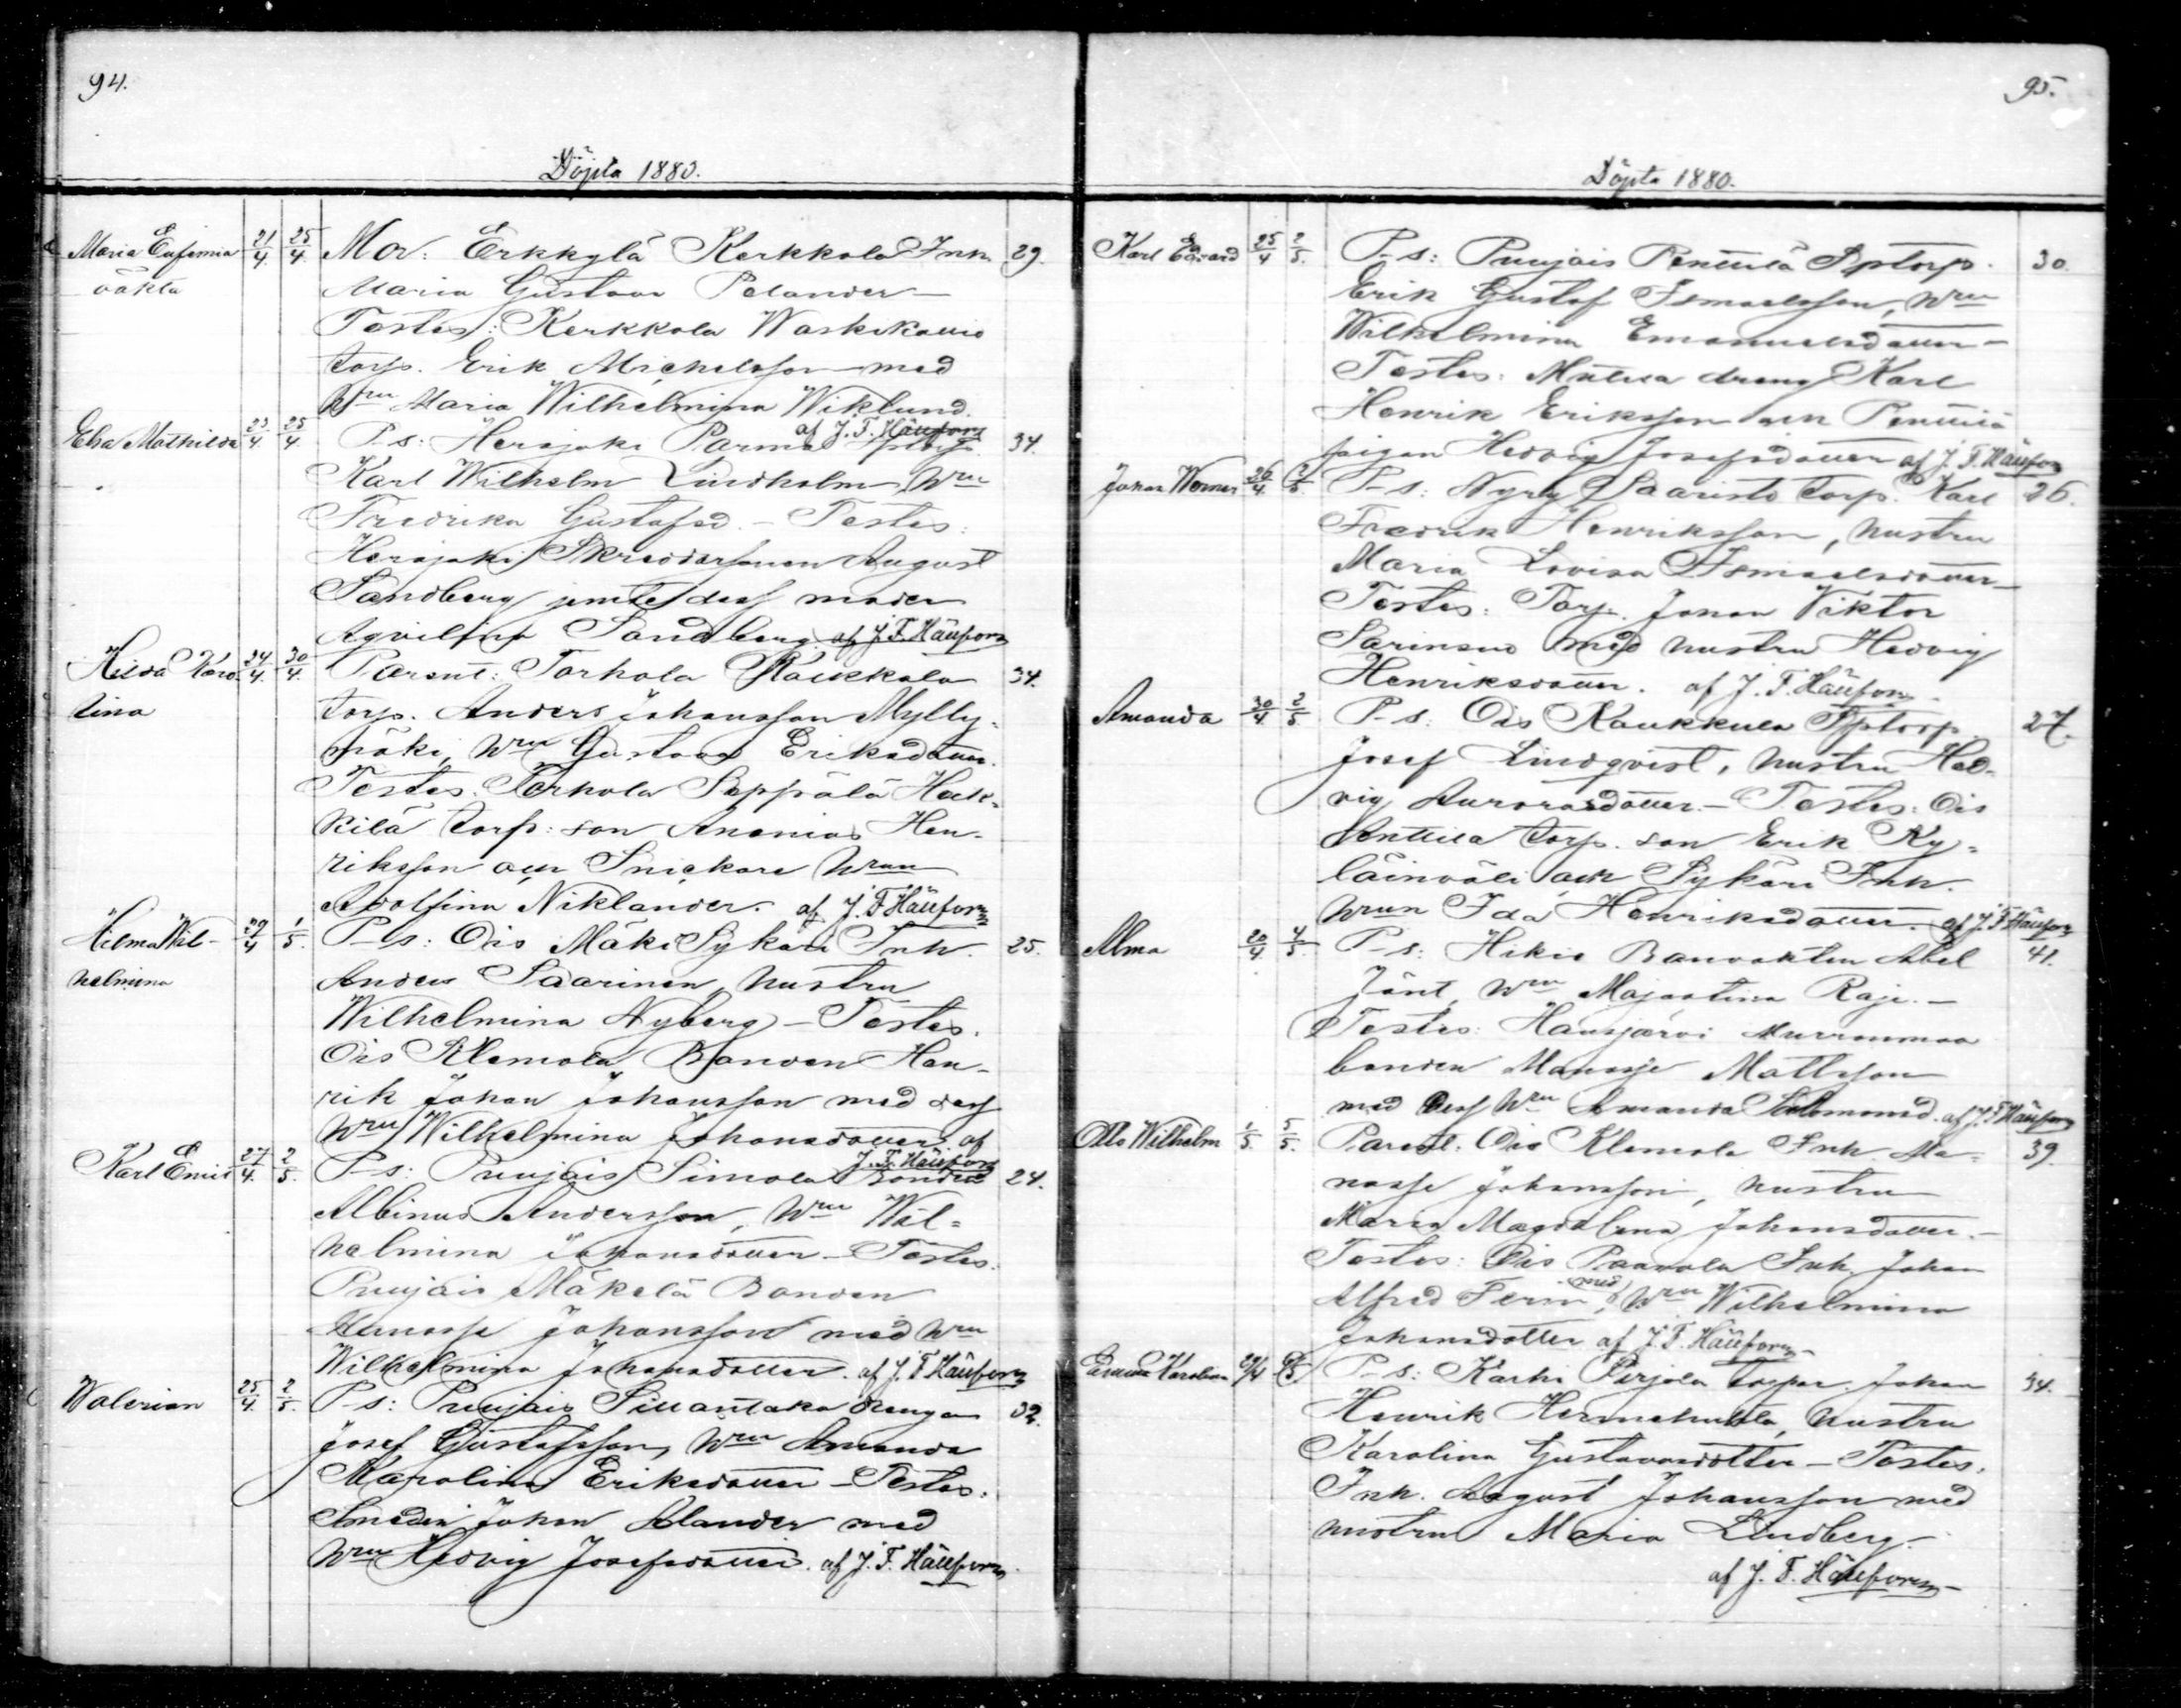 94.
Döpta 1880.
Maria Eufemia 21/4 25/4 Mor: Erkkylä Kerkkola Inh. 29.
oäkta Maria Gustava Pelander –
Testes: Kerkkola Waskikallio
torp. Erik Michelsson med
Hru Maria Wilhelmina Wiklund.
af J. F. Hällfors
Elsa Mathilda 23/4 25/4 P-s: Herajoki Parma Sptorp. 34.
Karl Wilhelm Lindholm, Hru
Fredrika Gustafsd. – Testes:
Herajoki Skreddarsonen August
Sandberg jemte dess moder
Sandberg af J. F. Hällfors
Hilda Karo- 24/4 30/4 Parent: Torhola Kaukkola 34.
lina torp. Anders Johansson Mylly-
mäki, Hru Gustava Eriksdotter.
Testes: Torhola Seppälä Heik-
kilä torp: son Ananias Hen-
riksson och Snickare Hrun
Adolfina Niklander. af J. F. Hällfors
Hilma Wil- 29/4 1/5 P-s: Ois Mäki Sykäri Inh. 25.
helmina Anders Saarinen, hustru
Wilhelmina Nyberg – Testes.
Ois Klemola Bonden Hen-
rik Johan Johansson med dess
Hru Wilhelmina Johansdotter af
J. F. Hällfors
Karl Emil 27/4 2/5 P-s: Puujais Simola Bonden 24.
Albinus Andersson, Hru Wil-
helmina Johansdotter – Testes.
Puujais Mäkelä Bonden
Johansson med Hru
Wilhelmina Johansdotter. af J. F. Hällfors
Walerian 25/4 2/5 P-s: Puujais Sillantaka drengen 32.
Josef Gustafsson, Hru Amanda
Karolina Eriksdotter – Testes:
Smeden Johan Alander med
Hru Hedvig Josefsdotter. af J. F. Hällfors
95.
Döpta 1880.
Karl Edvard 25/4 2/5 P-s: Puujais Penttilä Sptorp. 30.
Erik Gustaf Ismaelsson, Hru
Wilhelmina Emanuelsdotter –
Testes: dreng Karl
Henrik Eriksson och Penttilä
pigan Hedvig Josefsdotter af J. F. Hällfors
Johan Werner 26/4 2/5 P-s: Nyry Saaristo torp. Karl 26.
Fredrik Henriksson, hustru
Maria Lovisa Ismaelsdotter –
Testes: Torp. Johan Viktor
Sarinen med hustru Hedvig
Henriksdotter. af J. F. Hällfors
Amanda 30/4 2/5 P-s: Ois Kaukkula Sptorp. 27.
Josef Lindqvist, hustru Hed-
vig Aurorasdotter. – Testes: Ois
Anttila torp. son Erik Ky-
läinväli och Sykäri Inh.
Hrun Ida Henriksdotter. af J. F. Hällfors
Alma 20/4 4/5 P-s: Hikiä Banvakten Abel 41.
Jänt, Hru Majastina Raja. –
Testes: Hausjärvi Murronmaa
bonden Manasse Mattsson
med dess Hru Amanda Salomonsd. af J. F. Hällfors
Otto Wilhelm 1/5 5/5 Parent: Ois Klemola Inh. Ma- 39.
nasse Johansson, hustru
Maria Magdalena Johansdotter. –
Testes: Ois Paavola Inh. Johan
Alfred Ferm, med Hru Wilhelmina
Johansdotter af J. F. Hällfors
Karolina P-s: Karhi Pirjola torpar. Johan 34.
Henrik hustru
Karolina Gustavasdotter – Testes:
Inh. August Johansson med
hustru Maria Lindberg.
af J. F. Hällfors